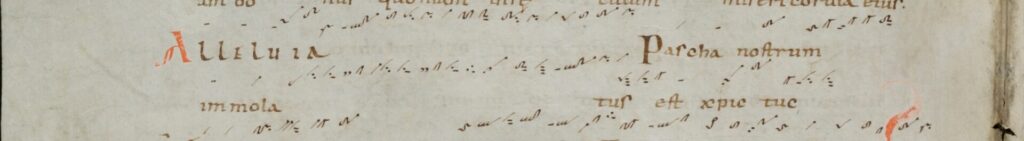 quoniam misericordia eius.
Alleluia Pascha nostrum
immola tus est xpic tuc